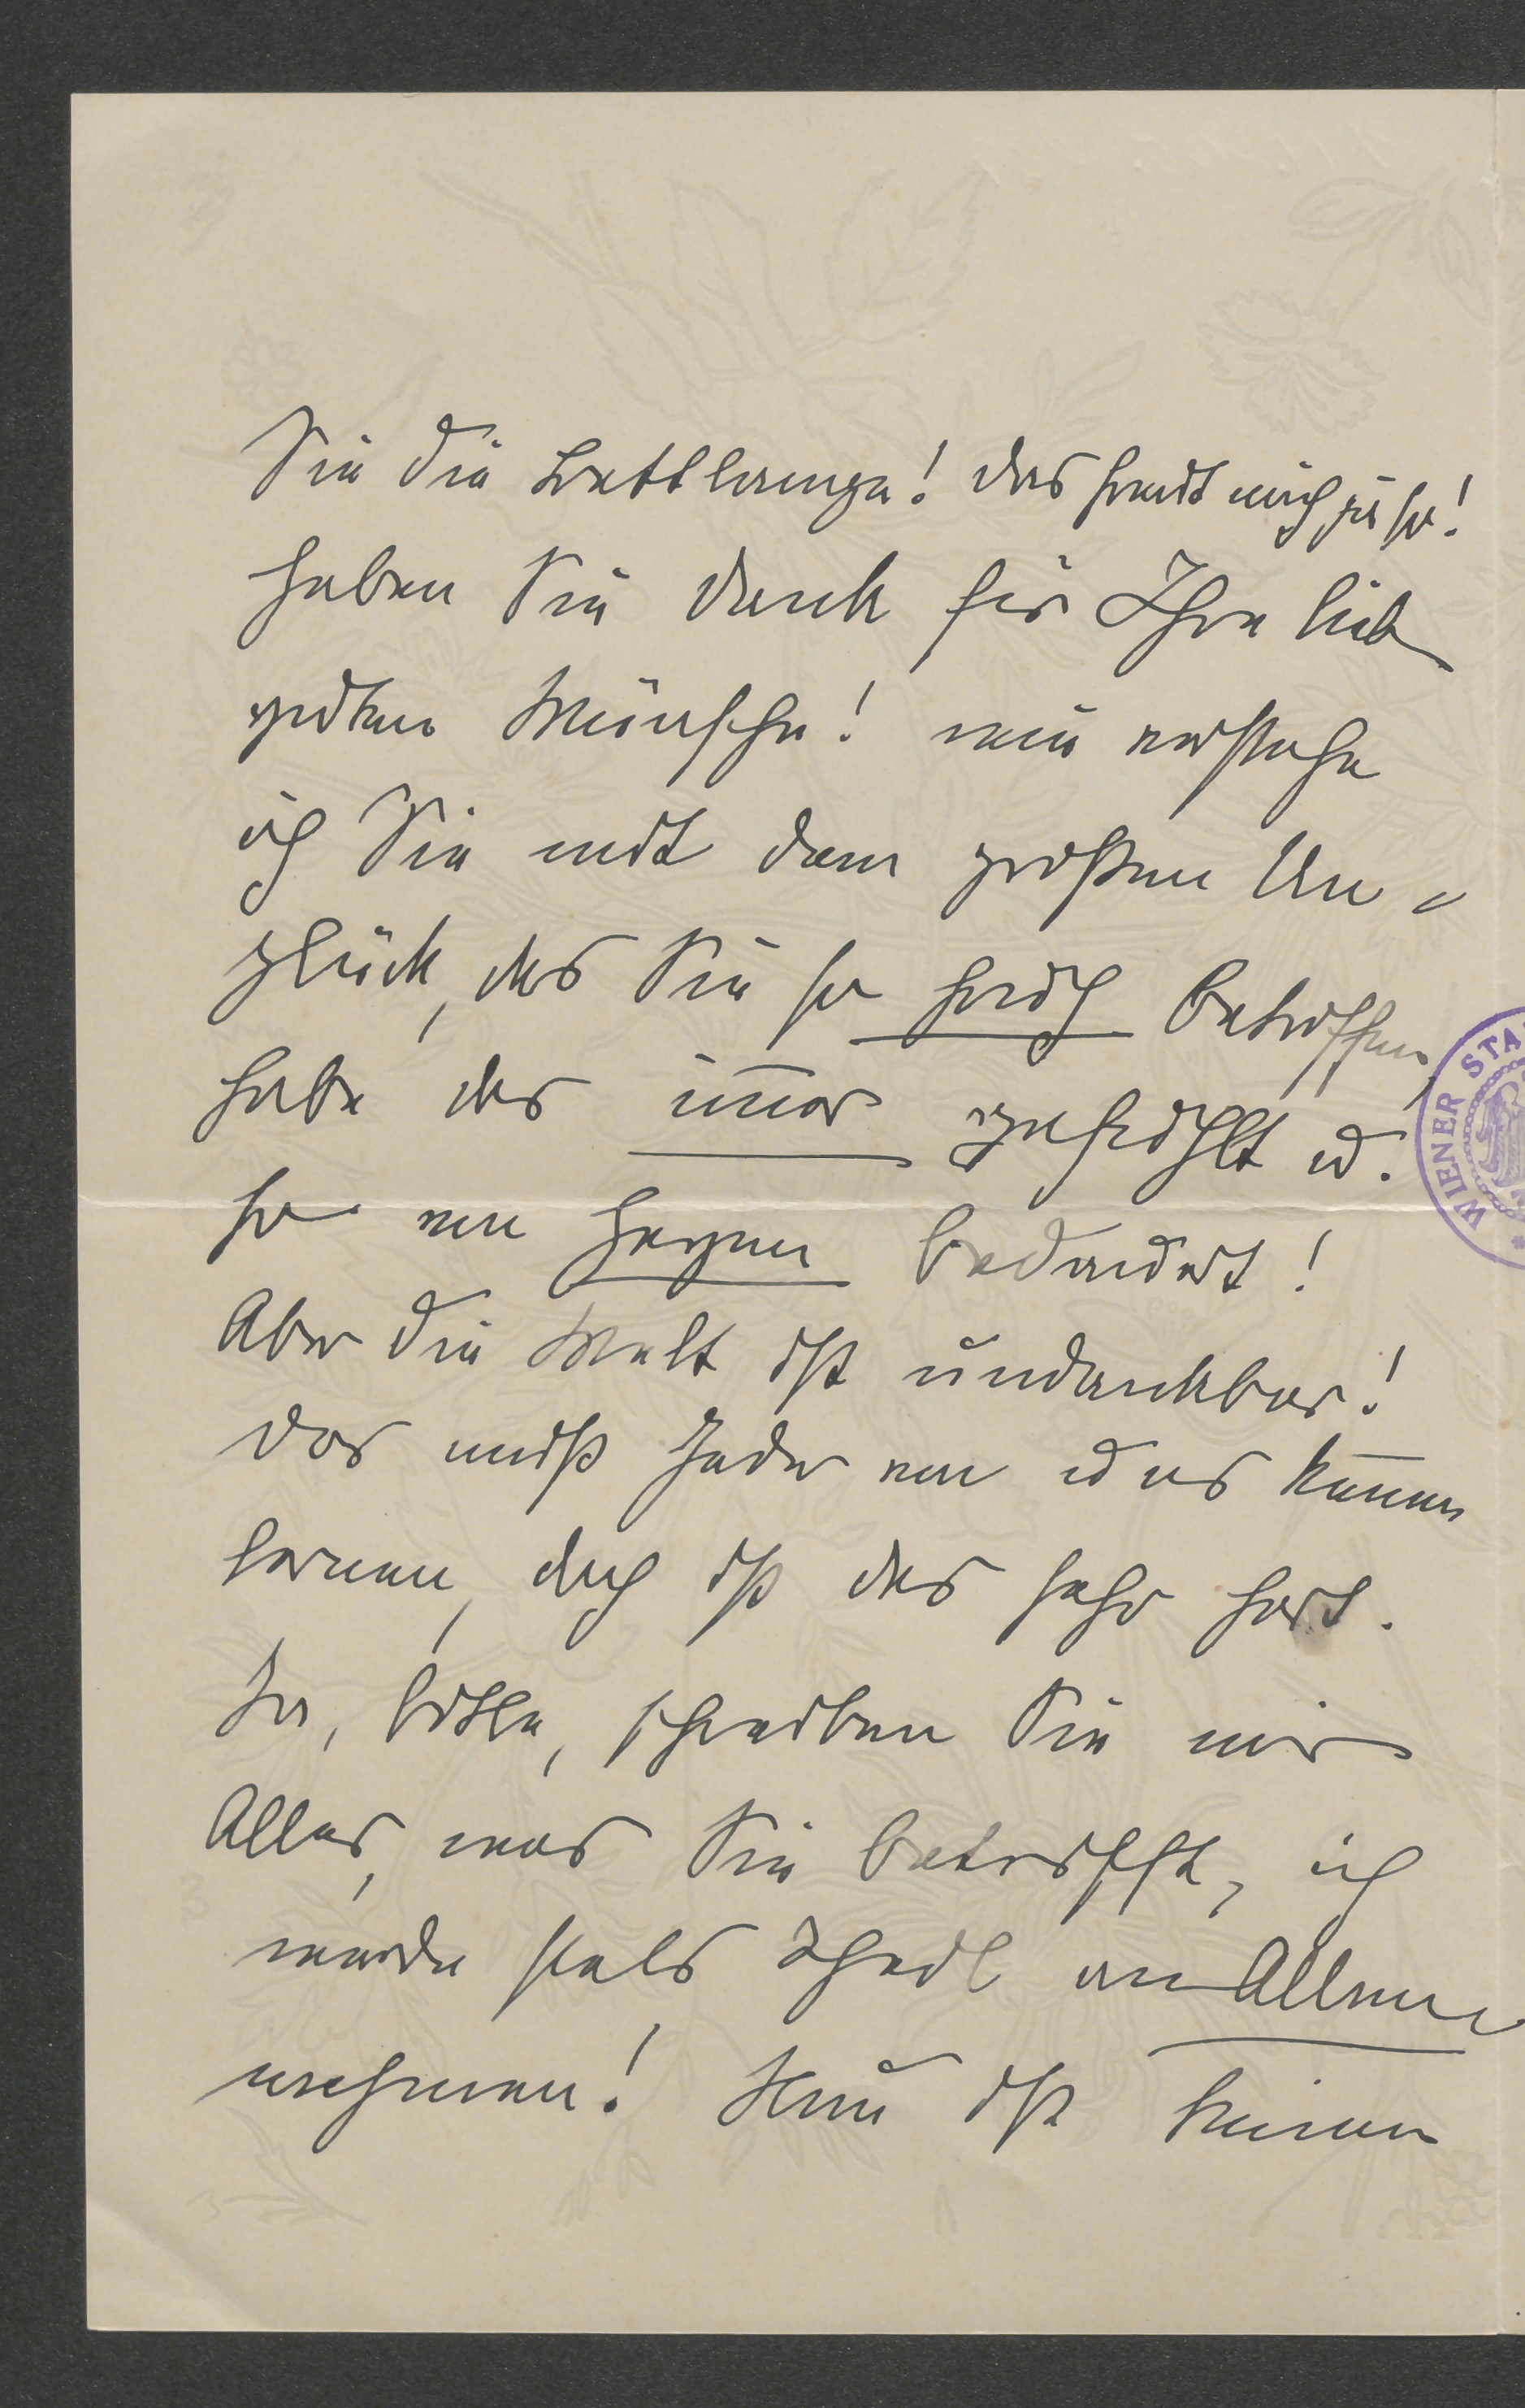 Sie die Bettlaunge! das freut mich ja so!
haben Sie Dank für Ihre lieb
guten Wünsche! nur verstehe
ich Sie mit dem großen Un-
glück, das Sie so früh betroffen,
habe das im̄er gefühlt u.
so von Herzen bedauert!
Aber die Welt ist undankbar!
das muß Jeder von uns kennen
lernen, doch ist das sehr hart.
Ja, bitte, schreiben Sie mir
Alles, was Sie betrifft, ich
werde stets Theil an Allem
nehmen! Nun ist keinen
WIENER STA